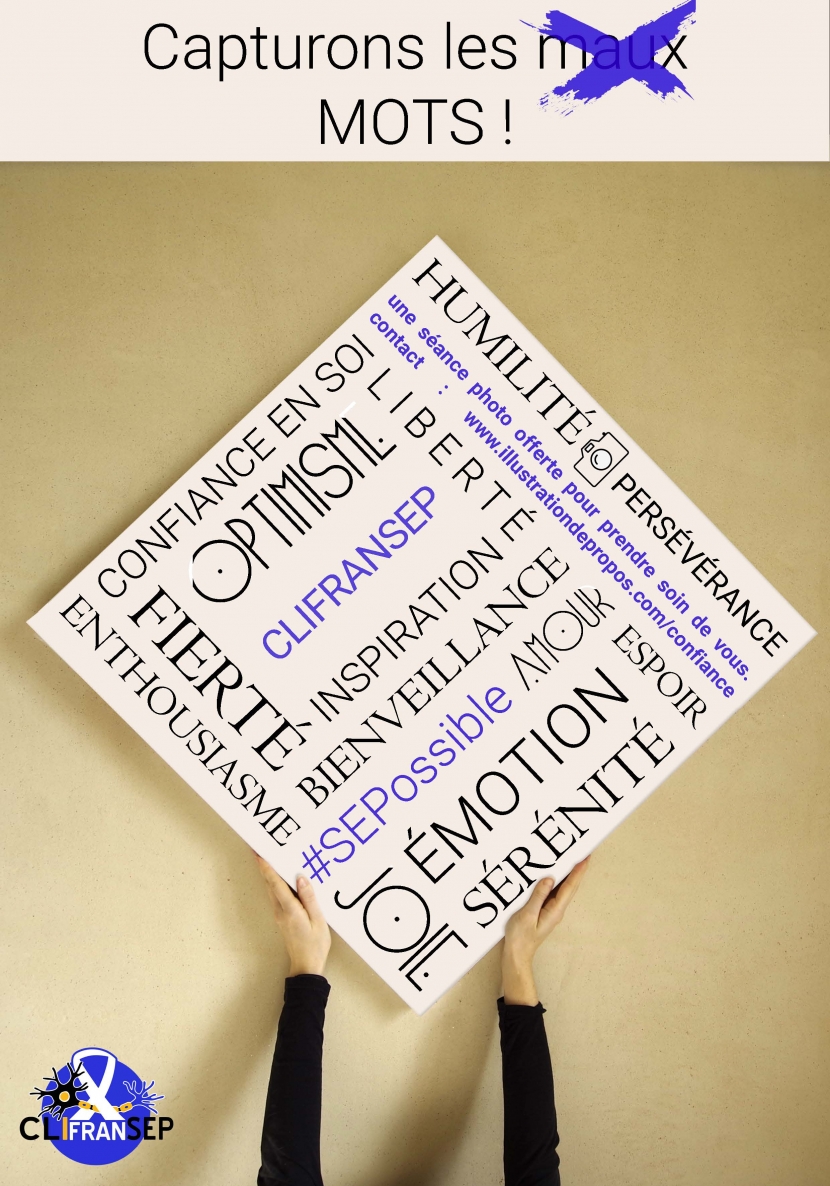 Capturons les maux
MOTS !
HUMILITÉ
PERSÉVÉRANCE
une séance photo offerte pour prendre soin de vous.
contact : www.illustrationdepropos.com/confiance
CONFIANCE EN SOI
LIBERTÉ
OPTIMISME
CLIFRANSEP
FIERTÉ
ENTHOUSIASME
INSPIRATION
BIENVEILLANCE
#SEPossible
AMOUR
ESPOIR
ÉMOTION
JOIE
SÉRÉNITÉ
CLIFRANSEP